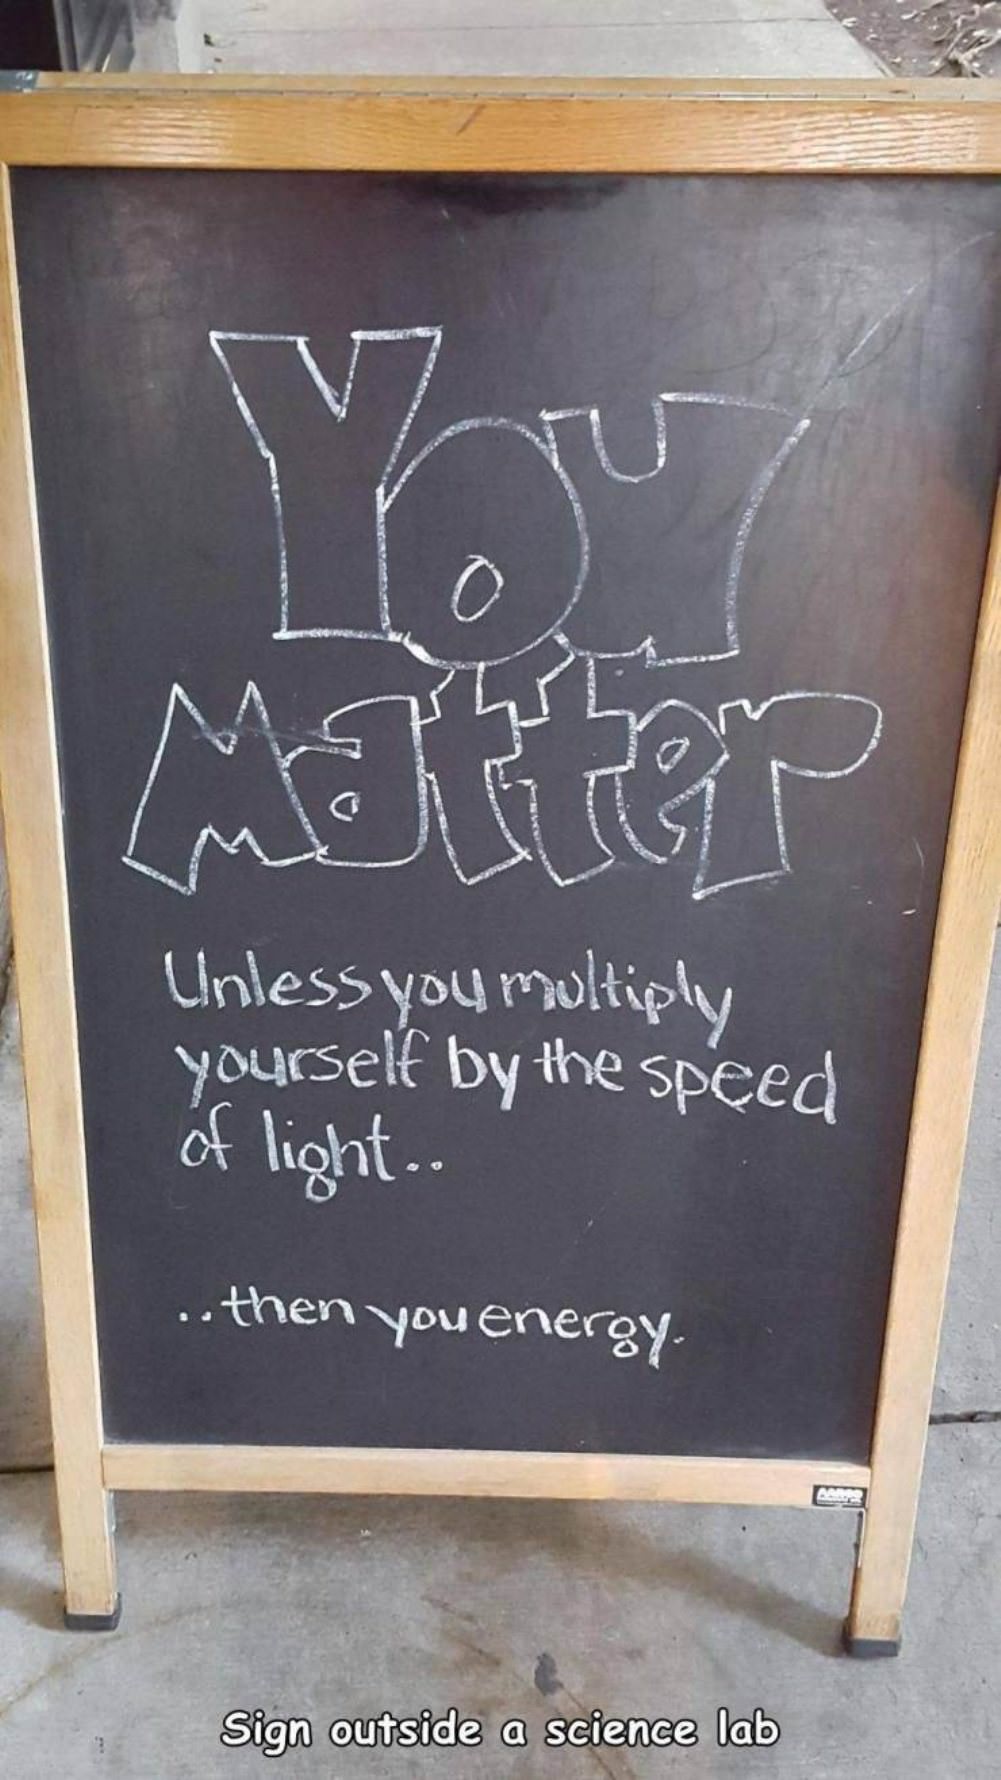 You
Matter
Unless you multiply
yourself by the speed
of light..
..then you energy.
AARCO
Sign outside a science lab